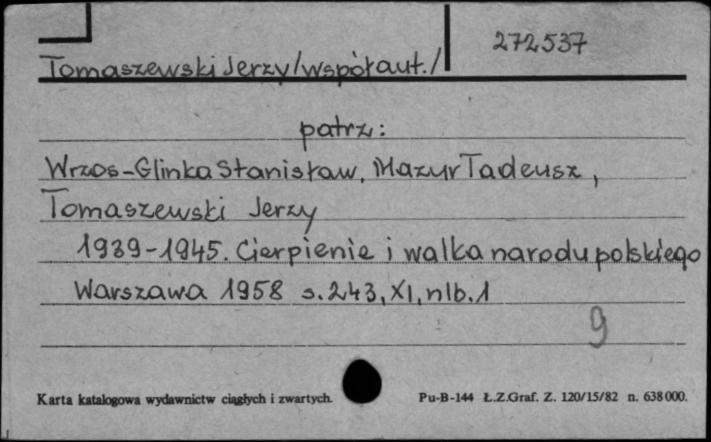 272537
Tomaszewski Jerzy/współaut./
patrz:
Wrzos-Glinka Stanisław, Mazur Tadeusz,
Tomaszewski Jerzy
1939-1945. Cierpienie i walka narodu polskiego
Warszawa 1958 s.243, XI, nlb.1
9
Karta katalogowa wydawnictw ciągłych i zwartych. Pu-B-144 Ł.Z.Graf. Z. 120/15/82 n. 638000.